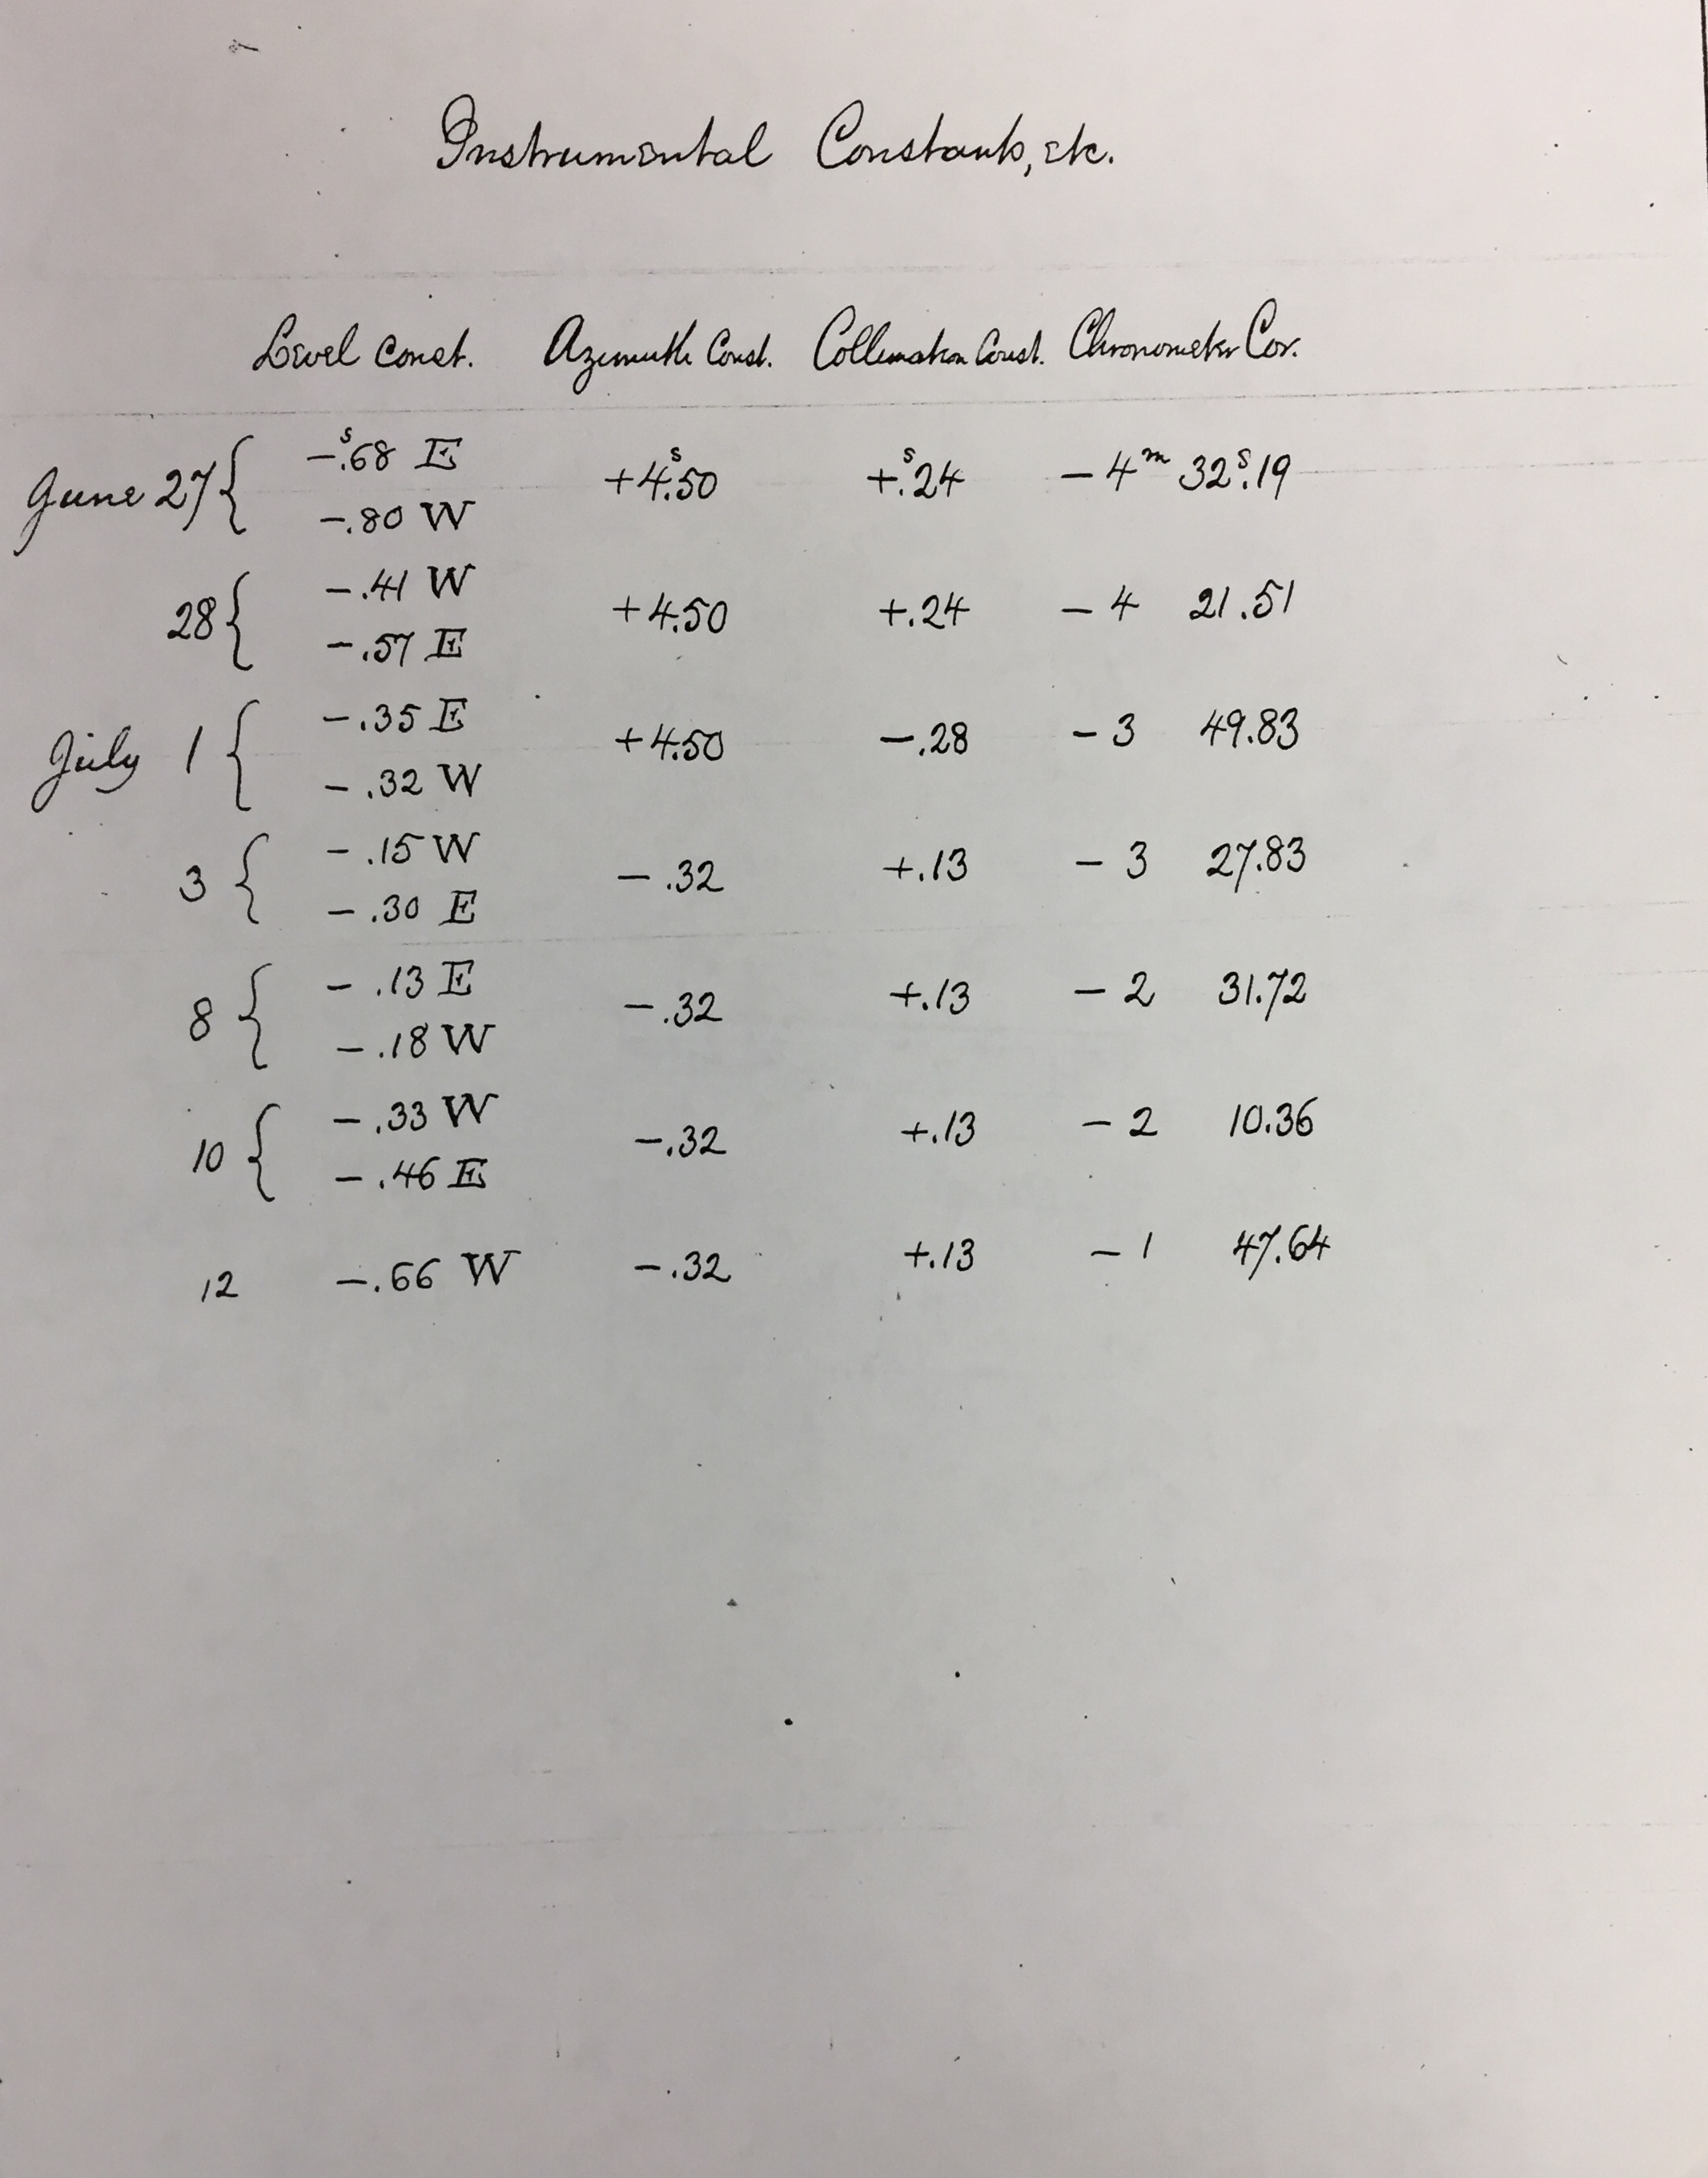 Instrumental Constants, etc.
Level Const. Azimuth Const. Collimation Const. Chronometer Cor.
June 27 { -ˢ.68 E +4ˢ.50 +ˢ.24 - 4ᵐ 32ˢ.19
-.80 W
28 { -.41 W +4.50 +.24 - 4 21.51
-.57 E
July 1 { -.35 E +4.50 -.28 - 3 49.83
-.32 W
3 { -.15 W -.32 +.13 - 3 27.83
-.30 E
8 { -.13 E -.32 +.13 - 2 31.72
-.18 W
10 { -.33 W -.32 +.13 - 2 10.36
-.46 E
12 -.66 W -.32 +.13 - 1 47.64